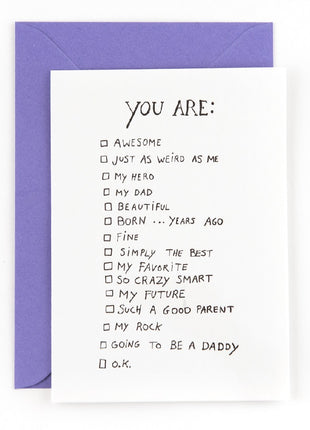 YOU ARE:
AWESOME
JUST AS WEIRD AS ME
MY HERO
MY DAD
BEAUTIFUL
BORN ... YEARS AGO
FINE
SIMPLY THE BEST
MY FAVORITE
SO CRAZY SMART
MY FUTURE
SUCH A GOOD PARENT
MY ROCK
GOING TO BE A DADDY
O.K.